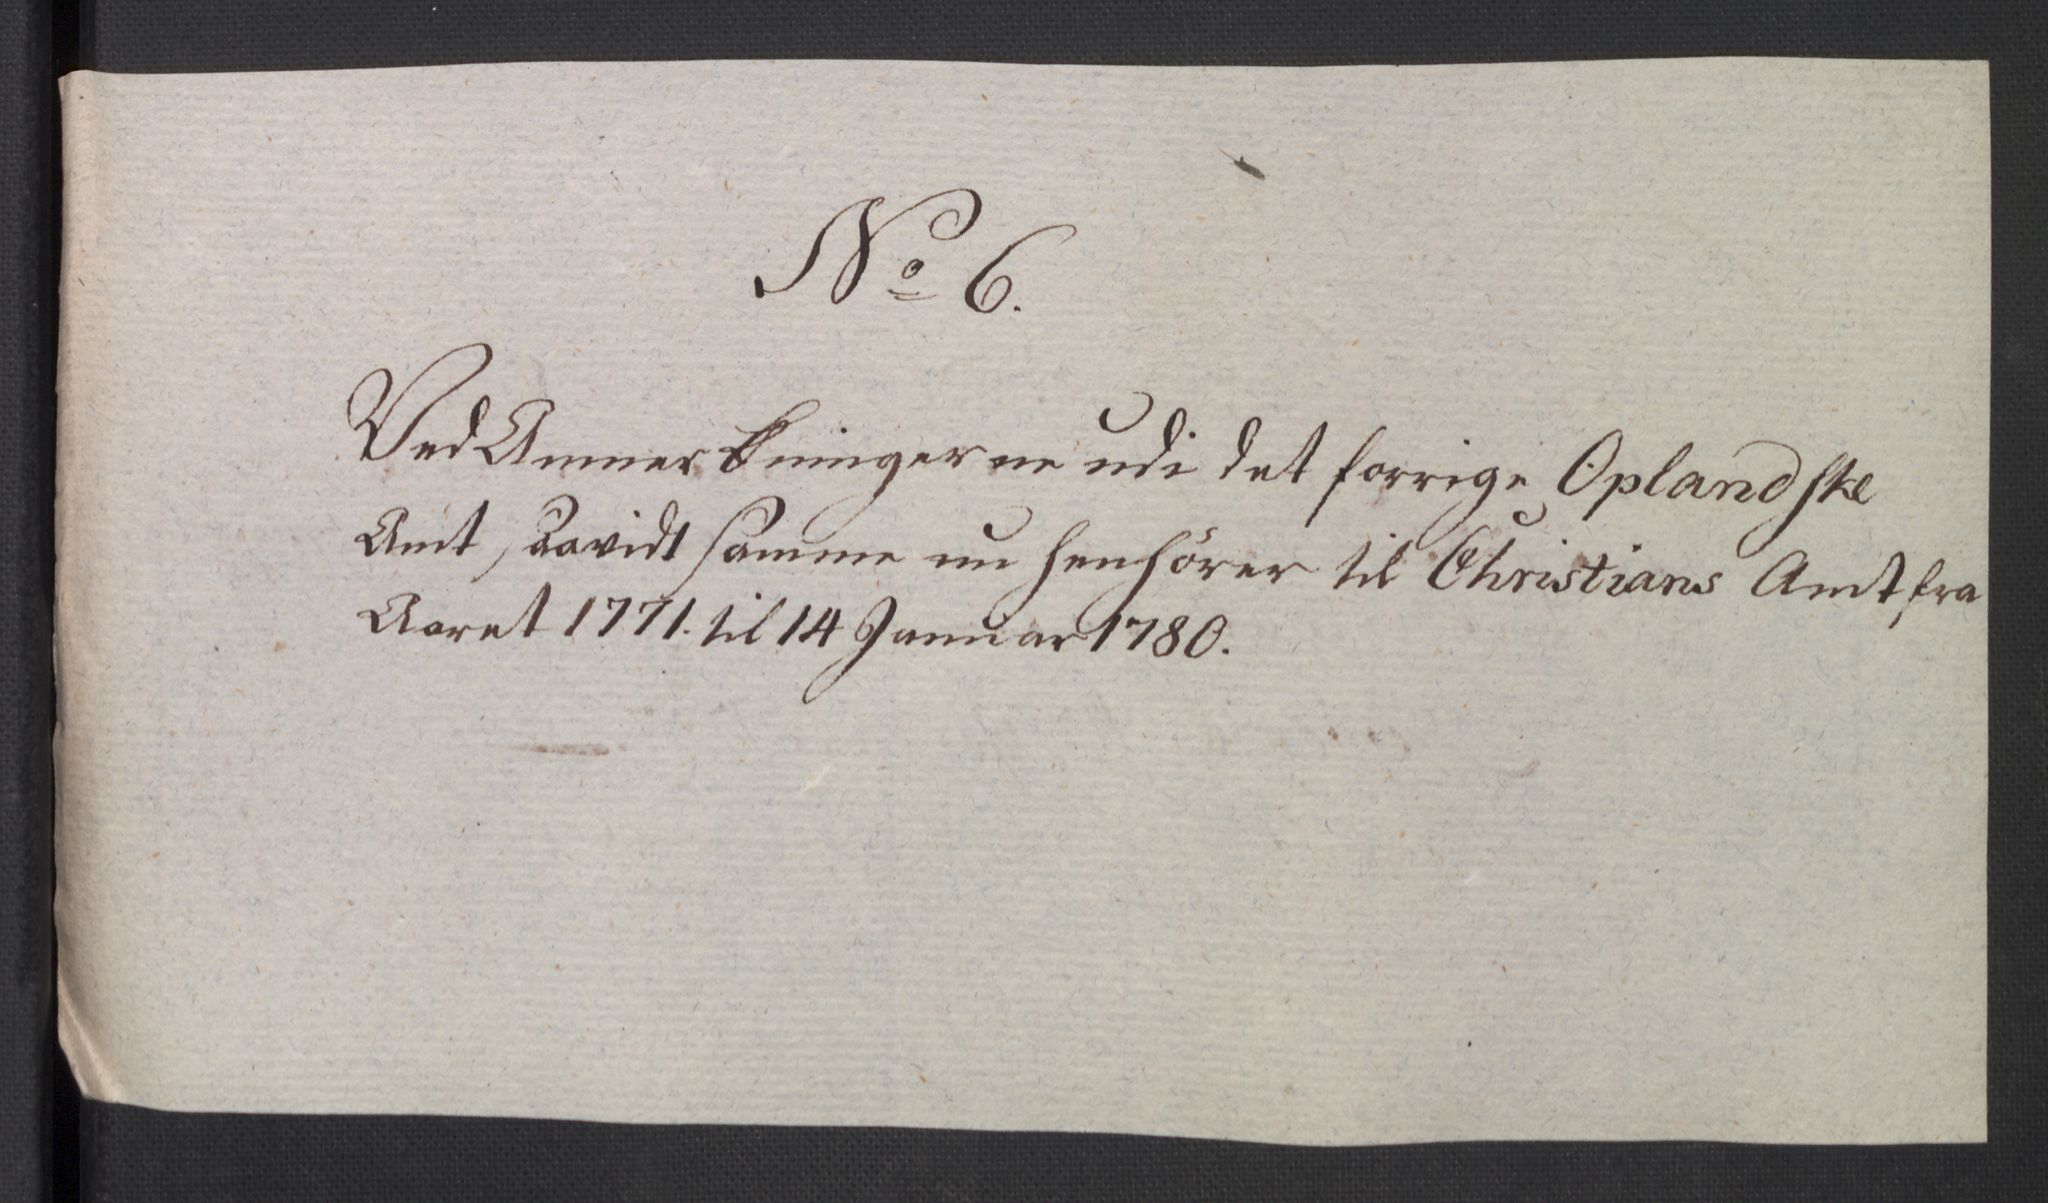 No 6.
Ved Anmerkningerne udi det forrige Oplandske
Amt saavidt samme nu henhörer til Christians Amt fra
Aaret 1771. til 14 Januar 1780.